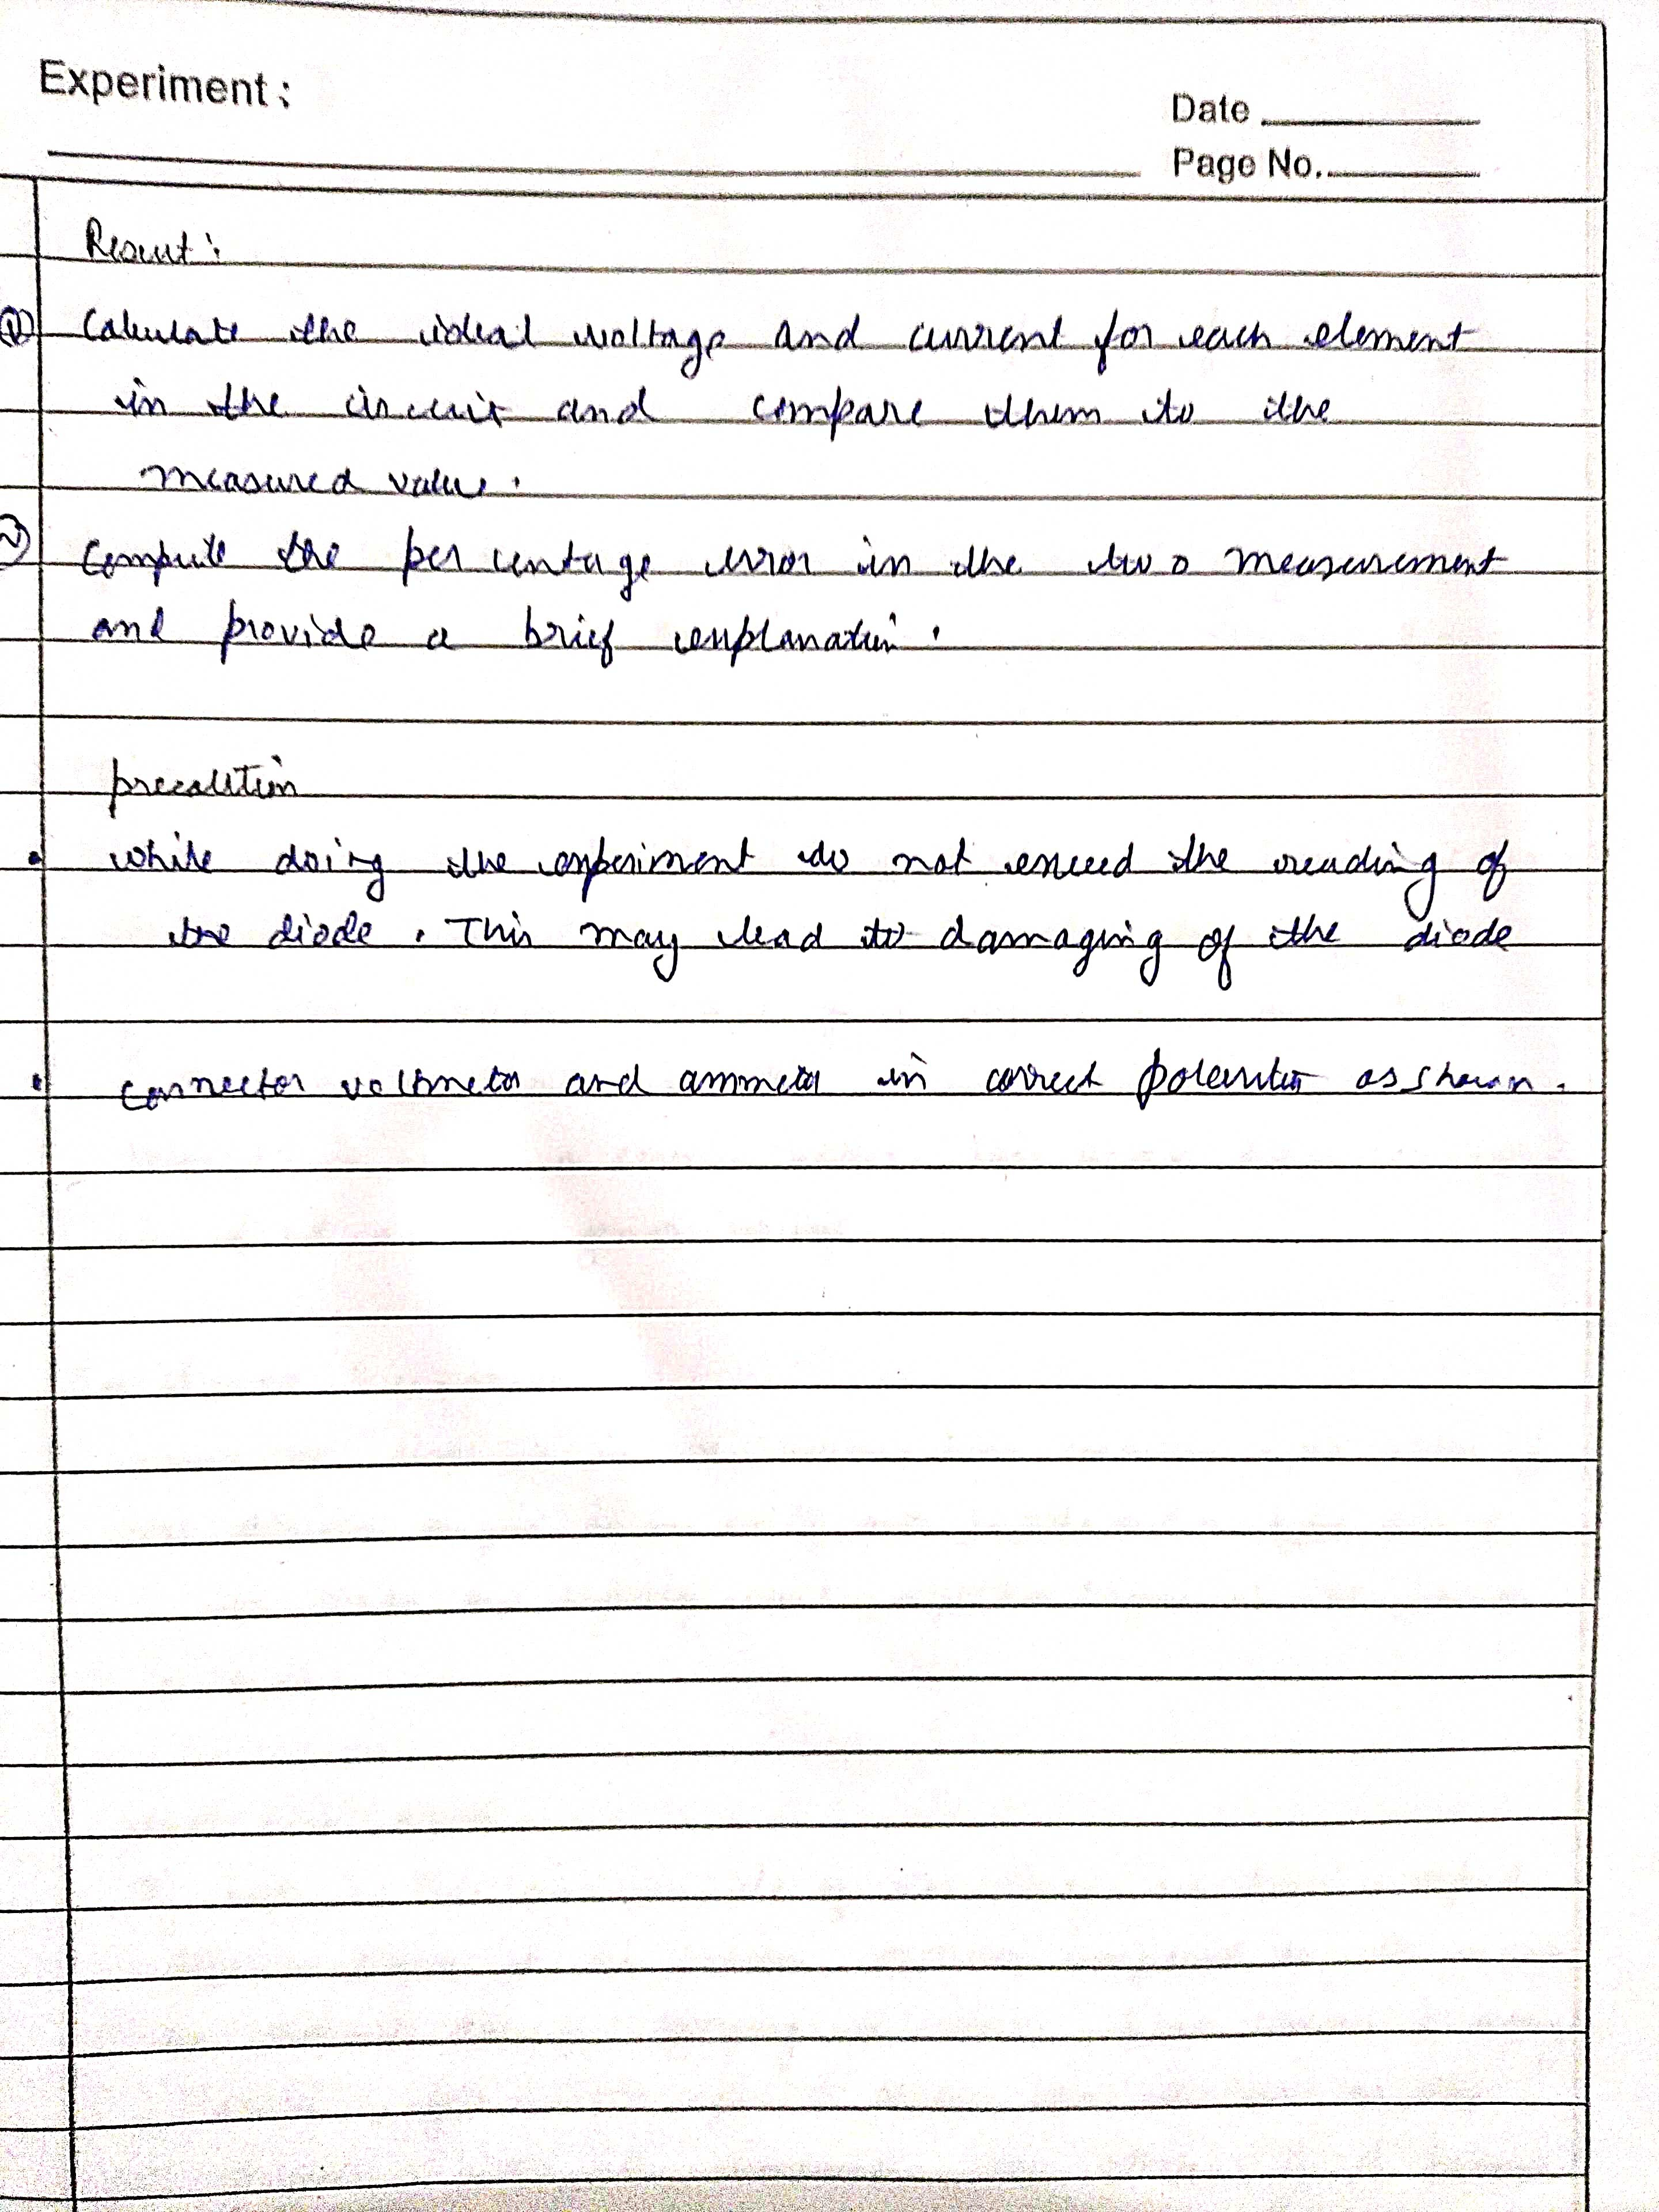 Experiment :
Date
Page No.
Result :
① Calculate the ideal voltage and current for each element
in the circuit and compare them to the
measured value.
② Compute the percentage error in the two measurement
and provide a brief explanation.
precaution
• while doing the experiment do not exceed the reading of
the diode. This may lead to damaging of the diode
• connector voltmeter and ammeter in correct as shown.